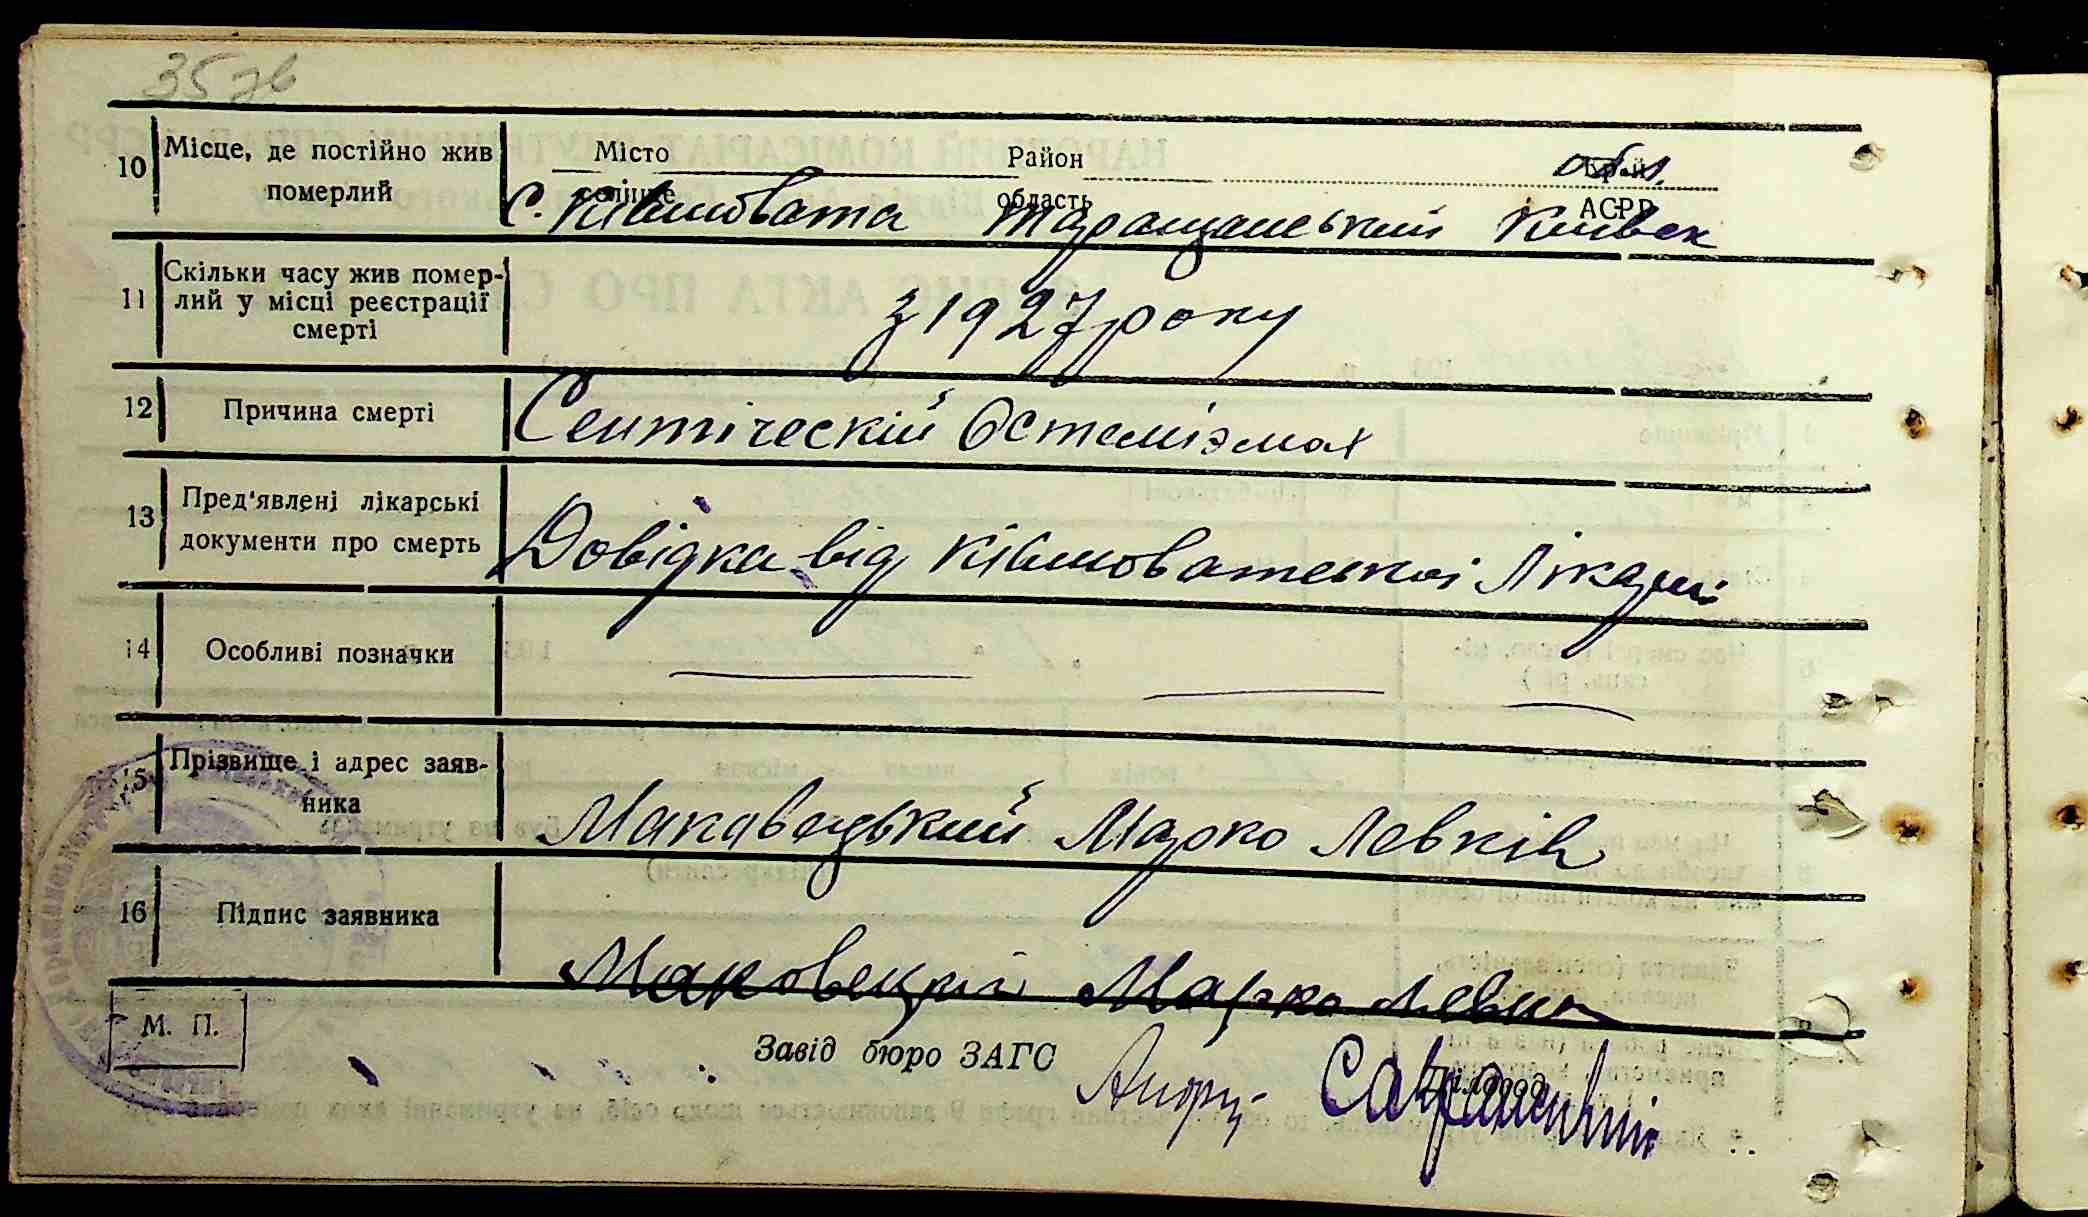 35 зв
10 Місце, де постійно жив померлий
Місто Район обл.
селище область АСРР
с. Ківшовата Таращанський Киівск
11 Скільки часу жив помер-
лий у місці реєстрації
смерті
з 1927 року
12 Причина смерті
Септіческій Остеміэмах
13 Пред'явлені лікарські
документи про смерть
Довідка від Ківшоватської Лікарні
14 Особливі позначки
15 Прізвище і адрес заяв-
ника
Макавецький Марко Левків
16 Підпис заявника
Маковецкий Марко Левк
М. П.
Завід бюро ЗАГС
Діловод